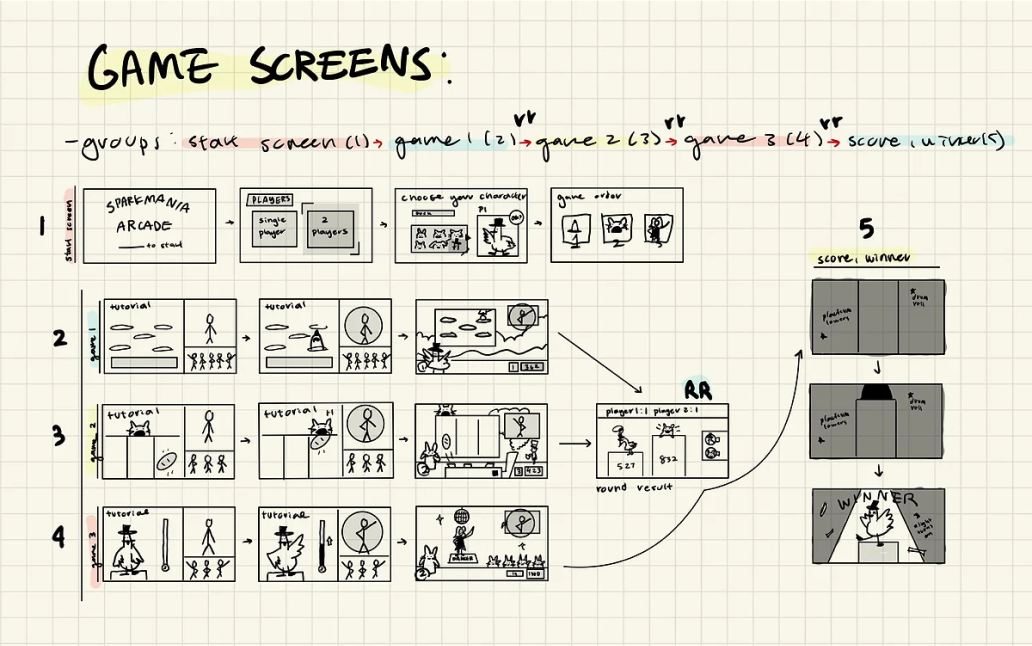 GAME SCREENS:
-groups: start screen(1)→ game 1 (2)→ game 2 (3)→ game 3 (4)→ score, winner(5)
rr rr rr
1
start screen
SPARKMANIA
ARCADE
to start
PLAYERS
single
player
2
players
choose your character
P1
game order
1
2
2
game 1
tutorial
tutorial
3
game 2
tutorial
tutorial
+1
2
4
game 3
tutorial
tutorial
2
RR
player 1:1 player 2:1
527
832
round result
5
score, winner
platform
lowers
drum
roll
platform
lowers
drum
roll
WINNER